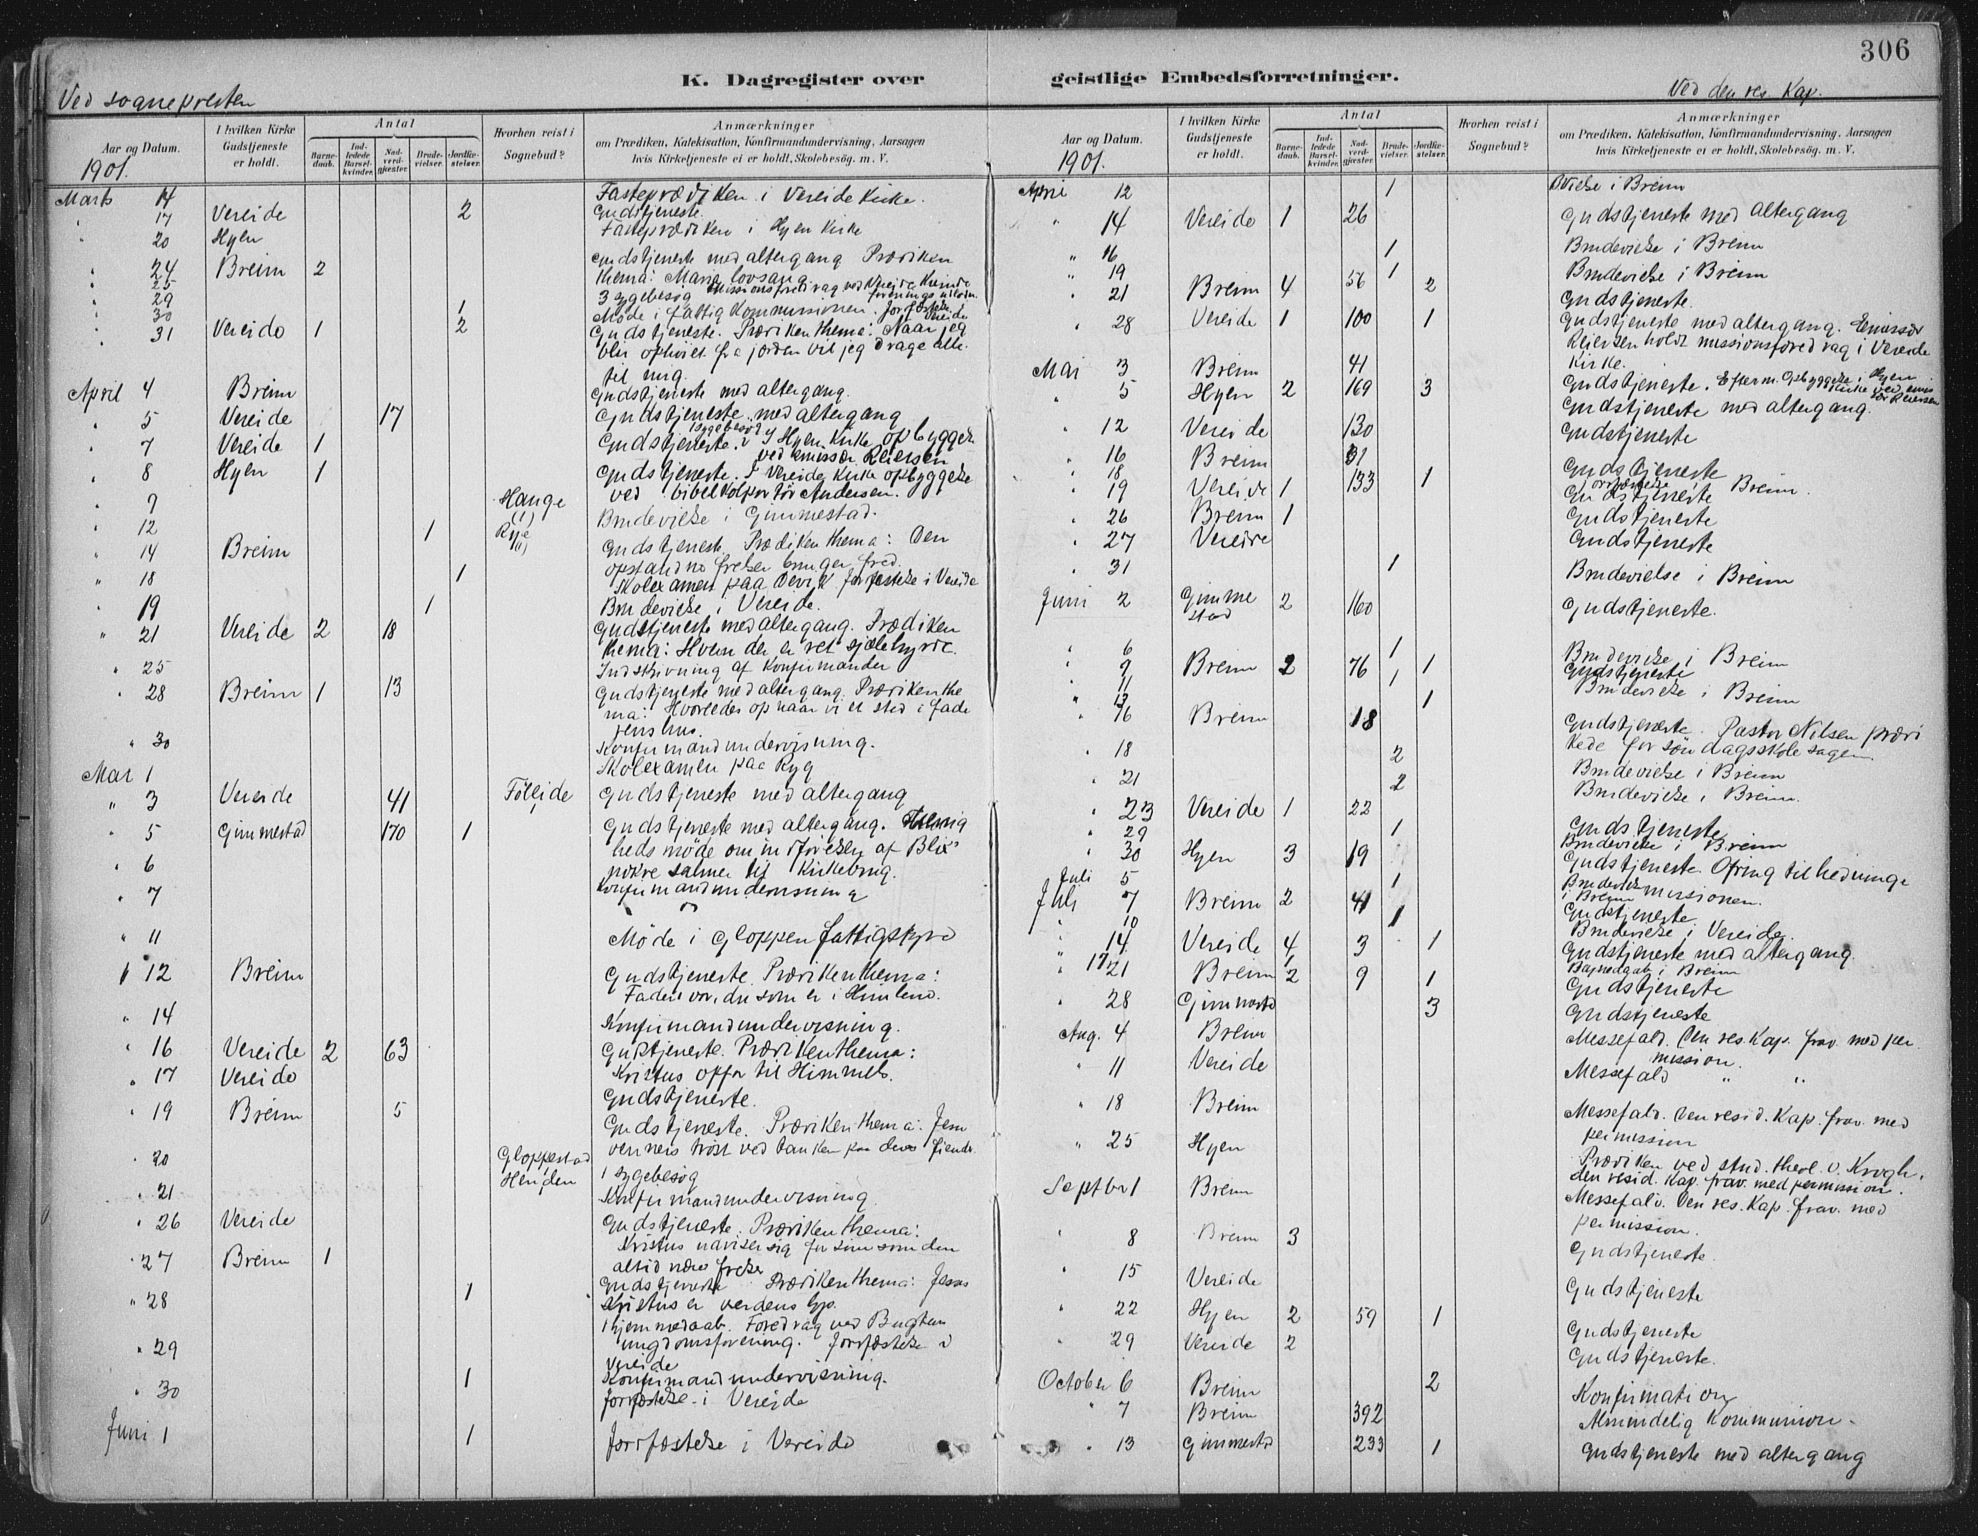 306
K. Dagregister over geistlige Embedsforretninger.
Ved sognepresten
Aar og Datum.
I hvilken Kirke Gudstjeneste er holdt.
Antal
Barne-daab.
Ind-ledede Barsel-kvinder.
Nad-verd-gjæster.
Brude-vielser.
Jordfæ-stelser.
Hvorhen reist i Sognebud?
Anmærkninger
om Prædiken, Katekisation, Konfirmandundervisning, Aarsagen
hvis Kirketjeneste ei er holdt, Skolebesög. m. V.
1901.
Marts 14 Fasteprædiken i Vereide Kirke.
" 17 Vereide 2 Gudstjeneste.
" 20 Hyen Fasteprædiken i Hyen Kirke
" 24 Breim 2 Gudstjeneste med altergang Prædiken
" 25 thema: Marias lovsang
" 29 3 sygebesög
" 30 1 Möde i fattigkommissionen. Jordfæstelse Vereide
" 31 Vereide 1 2 Gudstjeneste. Prædiken thema: Naar jeg
blir ophöiet fra jorden vil jeg drage alle
til mig.
April 4 Breim Gudstjeneste med altergang.
" 5 Vereide 17 Gudstjeneste med altergang
1 sygebesög
" 7 Vereide 1 Gudstjeneste. I Hyen Kirke opbyggelse
ved emissær Reiersen
" 8 Hyen 1 Gudstjeneste. I Vereide Kirke opbyggelse
ved bibelkolportör Andersen.
" 9 Hauge (1)
" 12 1 Rye (1) Brudevielse i Gimmestad.
" 14 Breim Gudstjeneste Prædiken thema: Den
opstandne frelser bringer fred.
" 18 1 Skolexamen paa Devik Jordfæstelse i Vereide
" 19 1 Brudevielse i Vereide.
" 21 Vereide 2 18 Gudstjeneste med altergang. Prædiken
thema: Hvem der er ret sjælehyrde.
" 25 Indskrivning af Konfirmander
" 28 Breim 1 13 Gudstjeneste med altergang. Prædiken the
ma: Hvorledes opnaar vi et sted i fade
rens hus.
" 30 Konfirmandundervisning.
Mai 1 Skolexamen paa Ryg
" 3 Vereide 41 Föleide Gudstjeneste med altergang
" 5 Gimmestad 170 1 Gudstjeneste med altergang.
heds möde om indförelsen af Blix'
" 6 nokre salmer til Kirkebrug.
" 7 Konfirmandundervisning
" 11 Möde i Gloppen fattigstyre
" 12 Breim Gudstjeneste Prædiken thema:
Fader vor, du som er i Himlene.
" 14 Konfirmandundervisning.
" 16 Vereide 2 63 Gudstjeneste. Prædiken thema:
" 17 Vereide Kristus opfor til Himmels.
Gudstjeneste.
" 19 Breim 5 Gudstjeneste. Prædiken thema: Jesu
venners tröst ved tanken paa deres fiender.
" 20 Gloppestad 1 sygebesög
" 21 Henden Konfirmandundervisning
" 26 Vereide Gudstjeneste. Prædiken thema:
Kristus udviser sig for sine som den
altid nære frelser
" 27 Breim 1 Gudstjeneste Prædiken thema: Jesus
" 28 1 Kristus er verdens lys.
1 hjemmedaab. Foredrag ved Bugtens
" 29 ungdomsforening. Jordfæstelse i
Vereide
1 Konfirmandundervisning.
" 30 Jordfæstelse i Vereide
Juni 1 1 Jordfæstelse i Vereide
Ved den res. Kap.
Aar og Datum.
I hvilken Kirke Gudstjeneste er holdt.
Antal
Barne-daab.
Ind-ledede Barsel-kvinder.
Nad-verd-gjæster.
Brude-vielser.
Jordfæ-stelser.
Hvorhen reist i Sognebud?
Anmærkninger
om Prædiken, Katekisation, Konfirmandundervisning, Aarsagen
hvis Kirketjeneste ei er holdt, Skolebesög. m. V.
1901.
April 12 1 Vielse i Breim
" 14 Vereide 1 26 Gudstjeneste med altergang
" 16 1 Brudevielse i Breim
" 19 1 Brudevielse i Breim
" 21 Breim 4 56 2 Gudstjeneste.
" 28 Vereide 1 100 1 Gudstjeneste med altergang. Emissær
Reiersen holdt missionsforedrag i Vereide
Kirke.
Mai 3 Breim 41
" 5 Hyen 2 169 3 Gudstjeneste. Efterm. Opbyggelse i Hyen
Kirke ved emis
sær Reiersen
Gudstjeneste med altergang.
" 12 Vereide 130 Gudstjeneste
" 16 Breim 31 Gudstjeneste
" 18 Jordfæstelse i Breim.
" 19 Vereide 1 133 1 Gudstjeneste
" 26 Breim 1 Gudstjeneste
" 27 Vereide Gudstjeneste
" 31 1 Brudevielse i Breim
Juni 2 Gimme
stad 2 160 Gudstjeneste.
" 6 1 Brudevielse i Breim
" 9 Breim 2 76 1 Gudstjeneste
" 11 1 Brudevielse i Breim
" 13 1
" 16 Breim 18 Gudstjeneste. Pastor Nilsen prædi
kede for söndagsskolesagen
" 18 2 Brudevielse i Breim
" 21 2 Brudevielse i Breim.
" 23 Vereide 1 22 Gudstjeneste
" 29 1 Brudevielse i Breim
" 30 Hyen 3 19 Gudstjeneste. Ofring til hedninge
missionen.
Juli 5 1 Brudevielse
i Breim
Juli 7 Breim 2 41 Gudstjeneste
" 10 1 Brudevielse i Vereide.
" 14 Vereide 4 3 1 Gudstjeneste med altergang.
" 17 1 Barnedaab i Breim
" 21 Breim 2 9 1 Gudstjeneste
" 28 Gimmestd 3 Gudstjeneste
Aug. 4 Breim Messefald. Den res. Kap. frav. med per
mission.
" 11 Vereide Messefald " "
" 18 Breim Messefald. Den resid. Kap. frav. med
permission
" 25 Hyen Prædiken ved stud. theol. v. Krogh.
den resid. Kap. frav. med permission.
Septbr 1 Breim Messefald. Den res. Kap. frav. med
permission.
" 8 Breim 3 Gudstjeneste.
" 15 Vereide Gudstjeneste
" 22 Hyen 2 59 1 Gudstjeneste
" 29 Vereide 2 Gudstjeneste.
October 6 Breim 2 Konfirmation
" 7 Breim 392 Almindelig Kommunion.
" 13 Gimmestd 233 1 Gudstjeneste med altergang